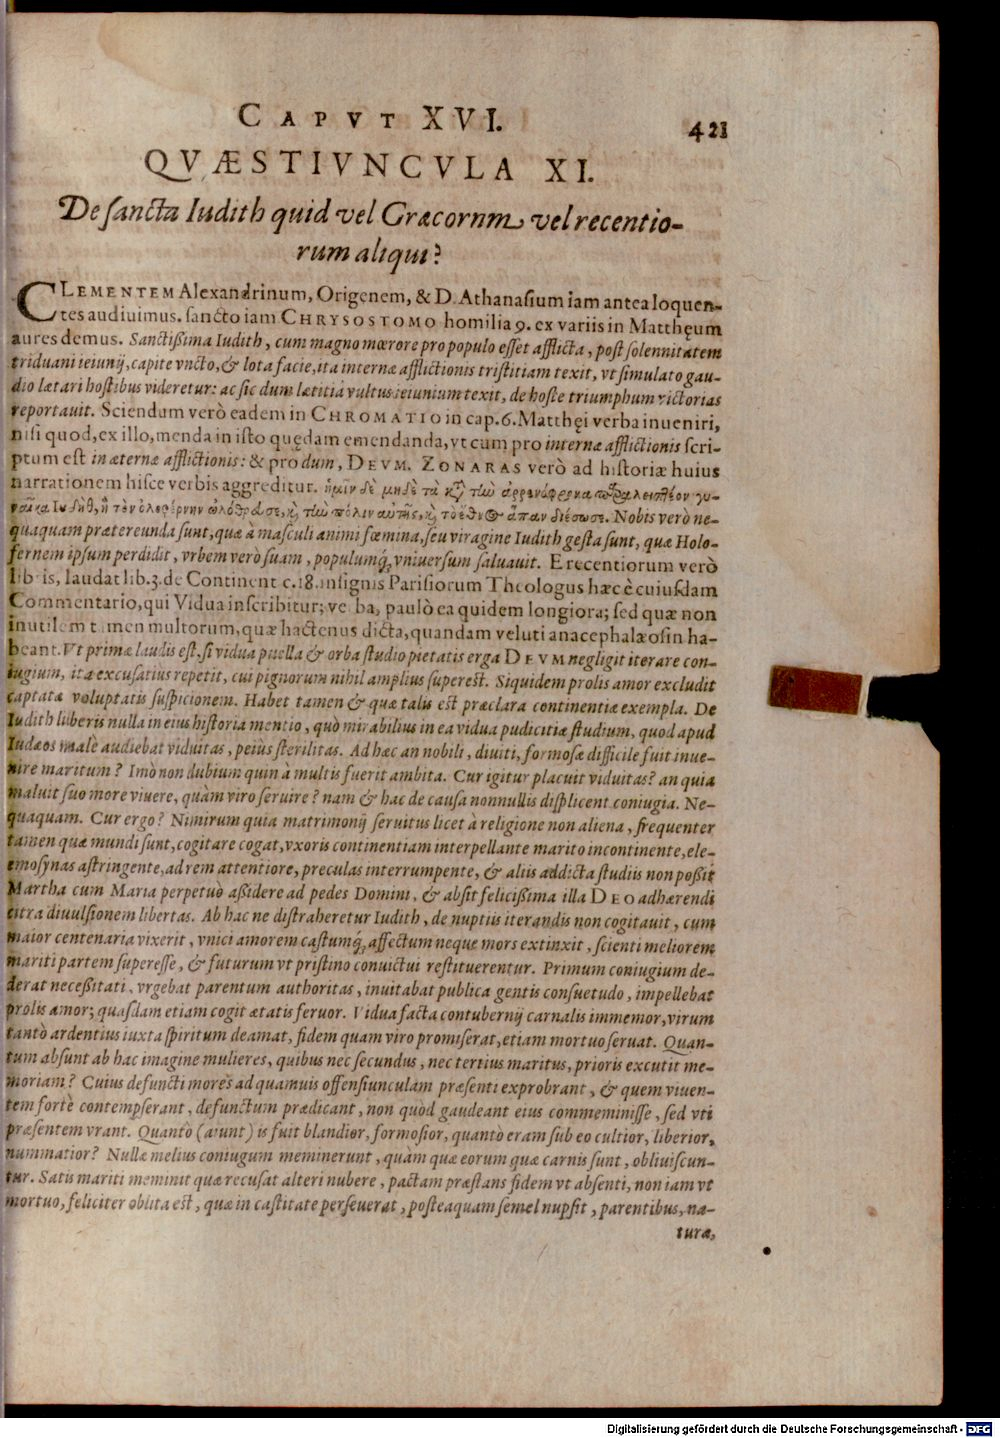 CAPVT XVI.
421
QVÆSTIVNCVLA XI.
De sancta Iudith quid vel Græcornm vel recentio-
rum aliqui?
CLEMENTEM Alexandrinum, Origenem, & D. Athanasium iam antea loquen-
tes audiuimus. sancto iam CHRYSOSTOMO homilia 9. ex variis in Matthęum
aures demus. Sanctißima Iudith, cum magno mœrore pro populo esset afflicta, post solennitatem
triduani ieiunij, capite vncto, & lota facie, ita internæ afflictionis tristitiam texit, vt simulato gau-
dio lætari hostibus videretur: ac sic dum lætitiá vultus ieiunium texit, de hoste triumphum victorias
reportauit. Sciendum verò eadem in CHROMATIO in cap. 6. Matthęi verba inueniri,
nisi quod, ex illo, menda in isto quędam emendanda, vt cum pro internæ afflictionis scri-
ptum est in æternæ afflictionis: & pro dum, DEVM. ZONARAS verò ad historiæ huius
narrationem hisce verbis aggreditur. ἡμῖν δὲ μηδὲ τὰ κατὰ τὴν ἀρρενόφρονα παραλειπτέον γυ-
ναῖκα Ιουδὴθ, ἣ τὸν ὀλοφέρνην ὠλόθρευσε, καὶ τὴν πόλιν αὐτῆς, καὶ τὸ ἔθνος ἅπαν διέσωσε. Nobis verò ne-
quaquam prætereunda sunt, quæ à masculi animi fœmina, seu viragine Iudith gesta sunt, quæ Holo-
fernem ipsum perdidit, vrbem verò suam, populumq́; vniuersum saluauit. E recentiorum verò
libris, laudat lib. 3. de Continent. c. 18. insignis Parisiorum Theologus hæc è cuiusdam
Commentario, qui Vidua inscribitur; verba, paulò ea quidem longiora; sed quæ non
inutilem tamen multorum, quæ hactenus dicta, quandam veluti anacephalæosin ha-
beant. Vt primæ laudis est, si vidua puella & orba studio pietatis erga DEVM negligit iterare con-
iugium, ita excusatius repetit, cui pignorum nihil amplius superest. Siquidem prolis amor excludit
captatæ voluptatis suspicionem. Habet tamen & quæ talis est præclara continentiæ exempla. De
Iudith liberis nulla in eius historia mentio, quò mirabilius in ea vidua pudicitiæ studium, quod apud
Iudæos malè audiebat viduitas, peius sterilitas. Ad hæc an nobili, diuiti, formosæ difficile fuit inue-
nire maritum? Imò non dubium quin à multis fuerit ambita. Cur igitur placuit viduitas? an quia
maluit suo more viuere, quàm viro seruire? nam & hac de causa nonnullis displicent coniugia. Ne-
quaquam. Cur ergo? Nimirum quia matrimonij seruitus licet à religione non aliena, frequenter
tamen quæ mundi sunt, cogitare cogat, vxoris continentiam interpellante marito incontinente, ele-
emosynas astringente, ad rem attentiore, preculas interrumpente, & aliis addicta studiis non poßit
Martha cum Maria perpetuò aßidere ad pedes Domini, & absit felicißima illa DEO adhærendi
citra diuulsionem libertas. Ab hac ne distraheretur Iudith, de nuptiis iterandis non cogitauit, cum
maior centenaria vixerit, vnici amorem castumq́; affectum neque mors extinxit, scienti meliorem
mariti partem superesse, & futurum vt pristino conuictui restituerentur. Primum coniugium de-
derat neceßitati, vrgebat parentum authoritas, inuitabat publica gentis consuetudo, impellebat
prolis amor; quasdam etiam cogit ætatis feruor. Vidua facta contubernij carnalis immemor, virum
tantò ardentius iuxta spiritum deamat, fidem quam viro promiserat, etiam mortuo seruat. Quan-
tum absunt ab hac imagine mulieres, quibus nec secundus, nec tertius maritus, prioris excutit me-
moriam? Cuius defuncti mores ad quamuis offensiunculam præsenti exprobrant, & quem viuen-
tem fortè contempserant, defunctum prædicant, non quòd gaudeant eius commeminisse, sed vti
præsentem vrant. Quantò (aiunt) is fuit blandior, formosior, quantò eram sub eo cultior, liberior,
nummatior? Nullæ melius coniugum meminerunt, quàm quæ eorum quæ carnis sunt, obliuiscun-
tur. Satis mariti meminit quæ recusat alteri nubere, pactam præstans fidem vt absenti, non iam vt
mortuo, feliciter oblita est, quæ in castitate perseuerat, posteaquam semel nupsit, parentibus, na-
turæ,
Digitalisierung gefördert durch die Deutsche Forschungsgemeinschaft - DFG